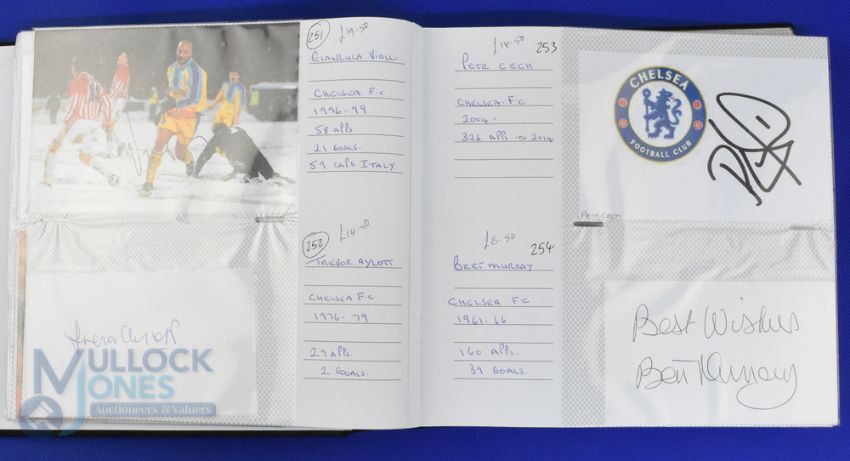 251 £19-50
GIANLUCA VIALLI
CHELSEA F.C
1996-99
58 APPS
21 GOALS.
59 CAPS ITALY
252 £14-50
TREVOR AYLOTT
CHELSEA F.C
1976-79
29 APPS.
2 GOALS.
£14-50 253
PETR CECH
CHELSEA. F.C
2004-
326 APPS - TO 2014
£8-50 254
BERT MURRAY
CHELSEA F.C
1961-66
160 APPS.
39 GOALS
CHELSEA
FOOTBALL CLUB
Petr Cech
Best Wishes
Bert Murray
MULLOCK
JONES
Auctioneers & Valuers